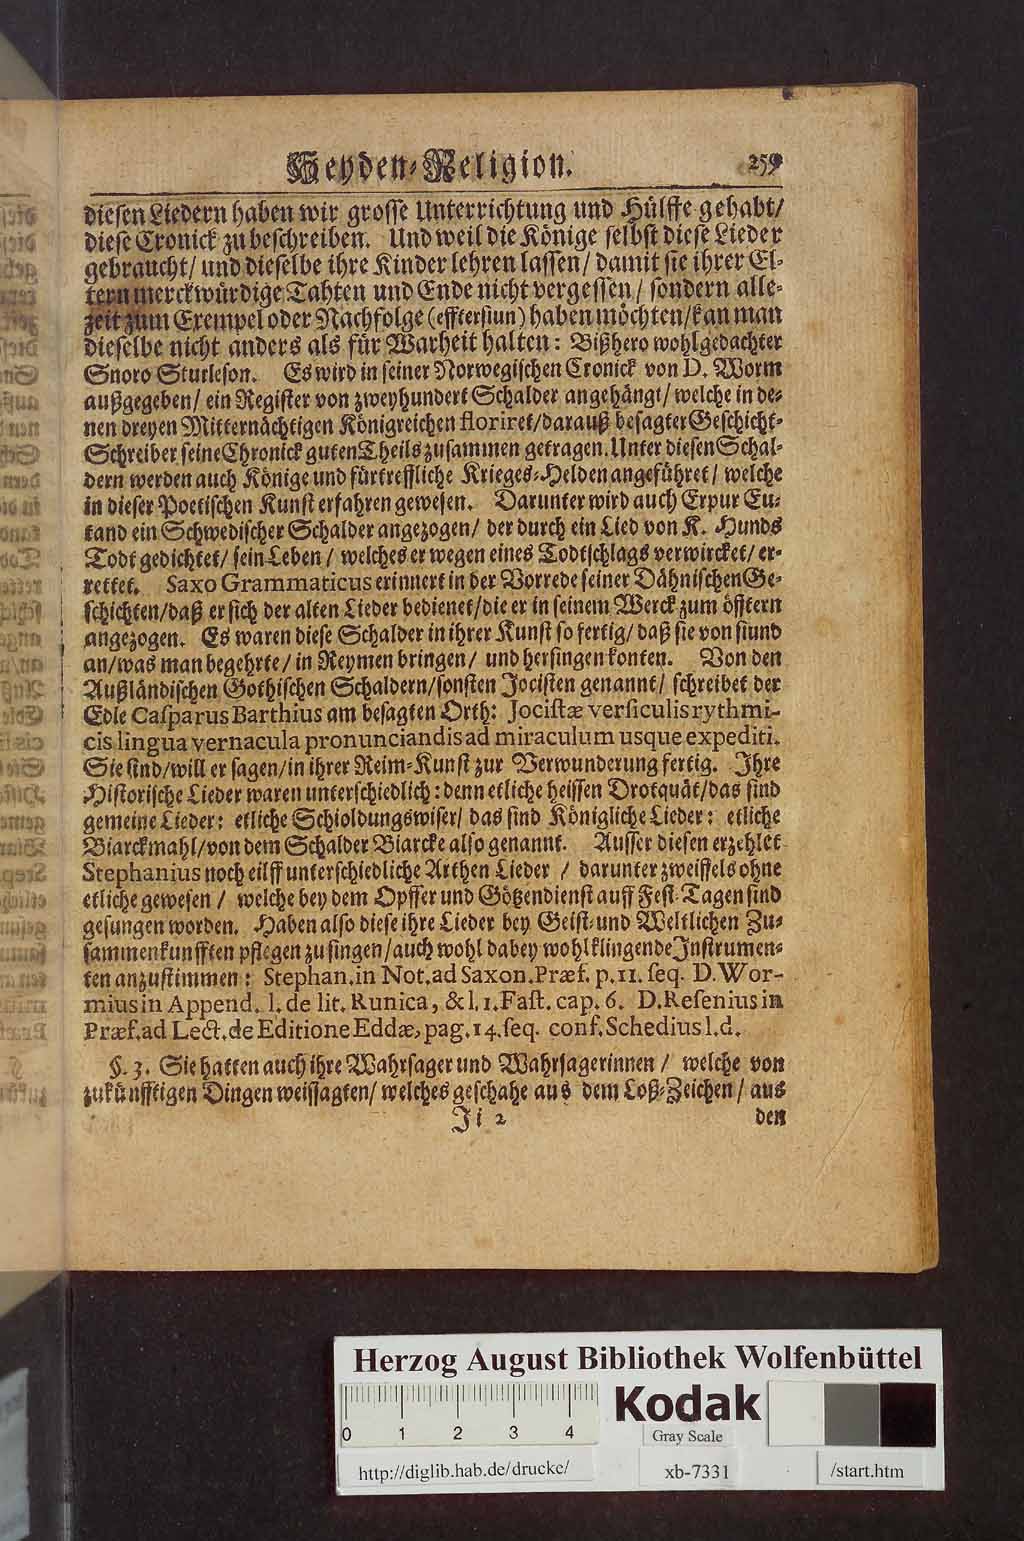 Heyden-Religion. 259
diesen Liedern haben wir grosse Unterrichtung und Hülffe gehabt/
diese Cronick zu beschreiben. Und weil die Könige selbst diese Lieder
gebraucht/ und dieselbe ihre Kinder lehren lassen/ damit sie ihrer El-
tern merckwürdige Tahten und Ende nicht vergessen/ sondern alle-
zeit zum Exempel oder Nachfolge (efftersiun) haben möchten/ kan man
dieselbe nicht anders als für Warheit halten: Bißhero wohlgedachter
Snoro Sturleson. Es wird in seiner Norwegischen Cronick von D. Worm
außgegeben/ ein Register von zweyhundert Schalder angehängt/ welche in de-
nen dreyen Mitternächtigen Königreichen floriret/ darauß besagter Geschicht-
Schreiber seine Chronick guten Theils zusammen getragen. Unter diesen Schal-
dern werden auch Könige und fürtreffliche Krieges-Helden angeführet/ welche
in dieser Poetischen Kunst erfahren gewesen. Darunter wird auch Erpur Eu-
tand ein Schwedischer Schalder angezogen/ der durch ein Lied von K. Hunds
Todt gedichtet/ sein Leben/ welches er wegen eines Todtschlags verwircket/ er-
rettet. Saxo Grammaticus erinnert in der Vorrede seiner Dähnischen Ge-
schichten/ daß er sich der alten Lieder bedienet/ die er in seinem Werck zum öfftern
angezogen. Es waren diese Schalder in ihrer Kunst so fertig/ daß sie von stund
an/ was man begehrte/ in Reymen bringen/ und hersingen konten. Von den
Außländischen Gothischen Schaldern/ sonsten Jocisten genannt/ schreibet der
Edle Caſparus Barthius am besagten Orth: Jociſtæ verſiculis rythmi-
cis lingua vernacula pronunciandis ad miraculum usque expediti.
Sie sind/ will er sagen/ in ihrer Reim-Kunst zur Verwunderung fertig. Ihre
Historische Lieder waren unterschiedlich: denn etliche heissen Drotquät/ das sind
gemeine Lieder: etliche Schioldungswiser/ das sind Königliche Lieder: etliche
Biarckmahl/ von dem Schalder Biarcke also genannt. Ausser diesen erzehlet
Stephanius noch eilff unterschiedliche Arthen Lieder / darunter zweiffels ohne
etliche gewesen / welche bey dem Opffer und Götzendienst auff Fest-Tagen sind
gesungen worden. Haben also diese ihre Lieder bey Geist- und Weltlichen Zu-
sammenkunfften pflegen zu singen/ auch wohl dabey wohlklingende Instrumen-
ten anzustimmen: Stephan. in Not. ad Saxon. Præf. p. 11. ſeq. D. Wor-
mius in Append. l. de lit. Runica, & l. 1. Faſt. cap. 6. D. Reſenius in
Præf. ad Lect. de Editione Eddæ, pag. 14. ſeq. conf. Schedius l. d.
§. 3. Sie hatten auch ihre Wahrsager und Wahrsagerinnen / welche von
zukünfftigen Dingen weissagten/ welches geschahe aus dem Loß-Zeichen/ aus
Ji 2 den
Herzog August Bibliothek Wolfenbüttel
0 1 2 3 4
Kodak
Gray Scale
http://diglib.hab.de/drucke/ xb-7331 /start.htm